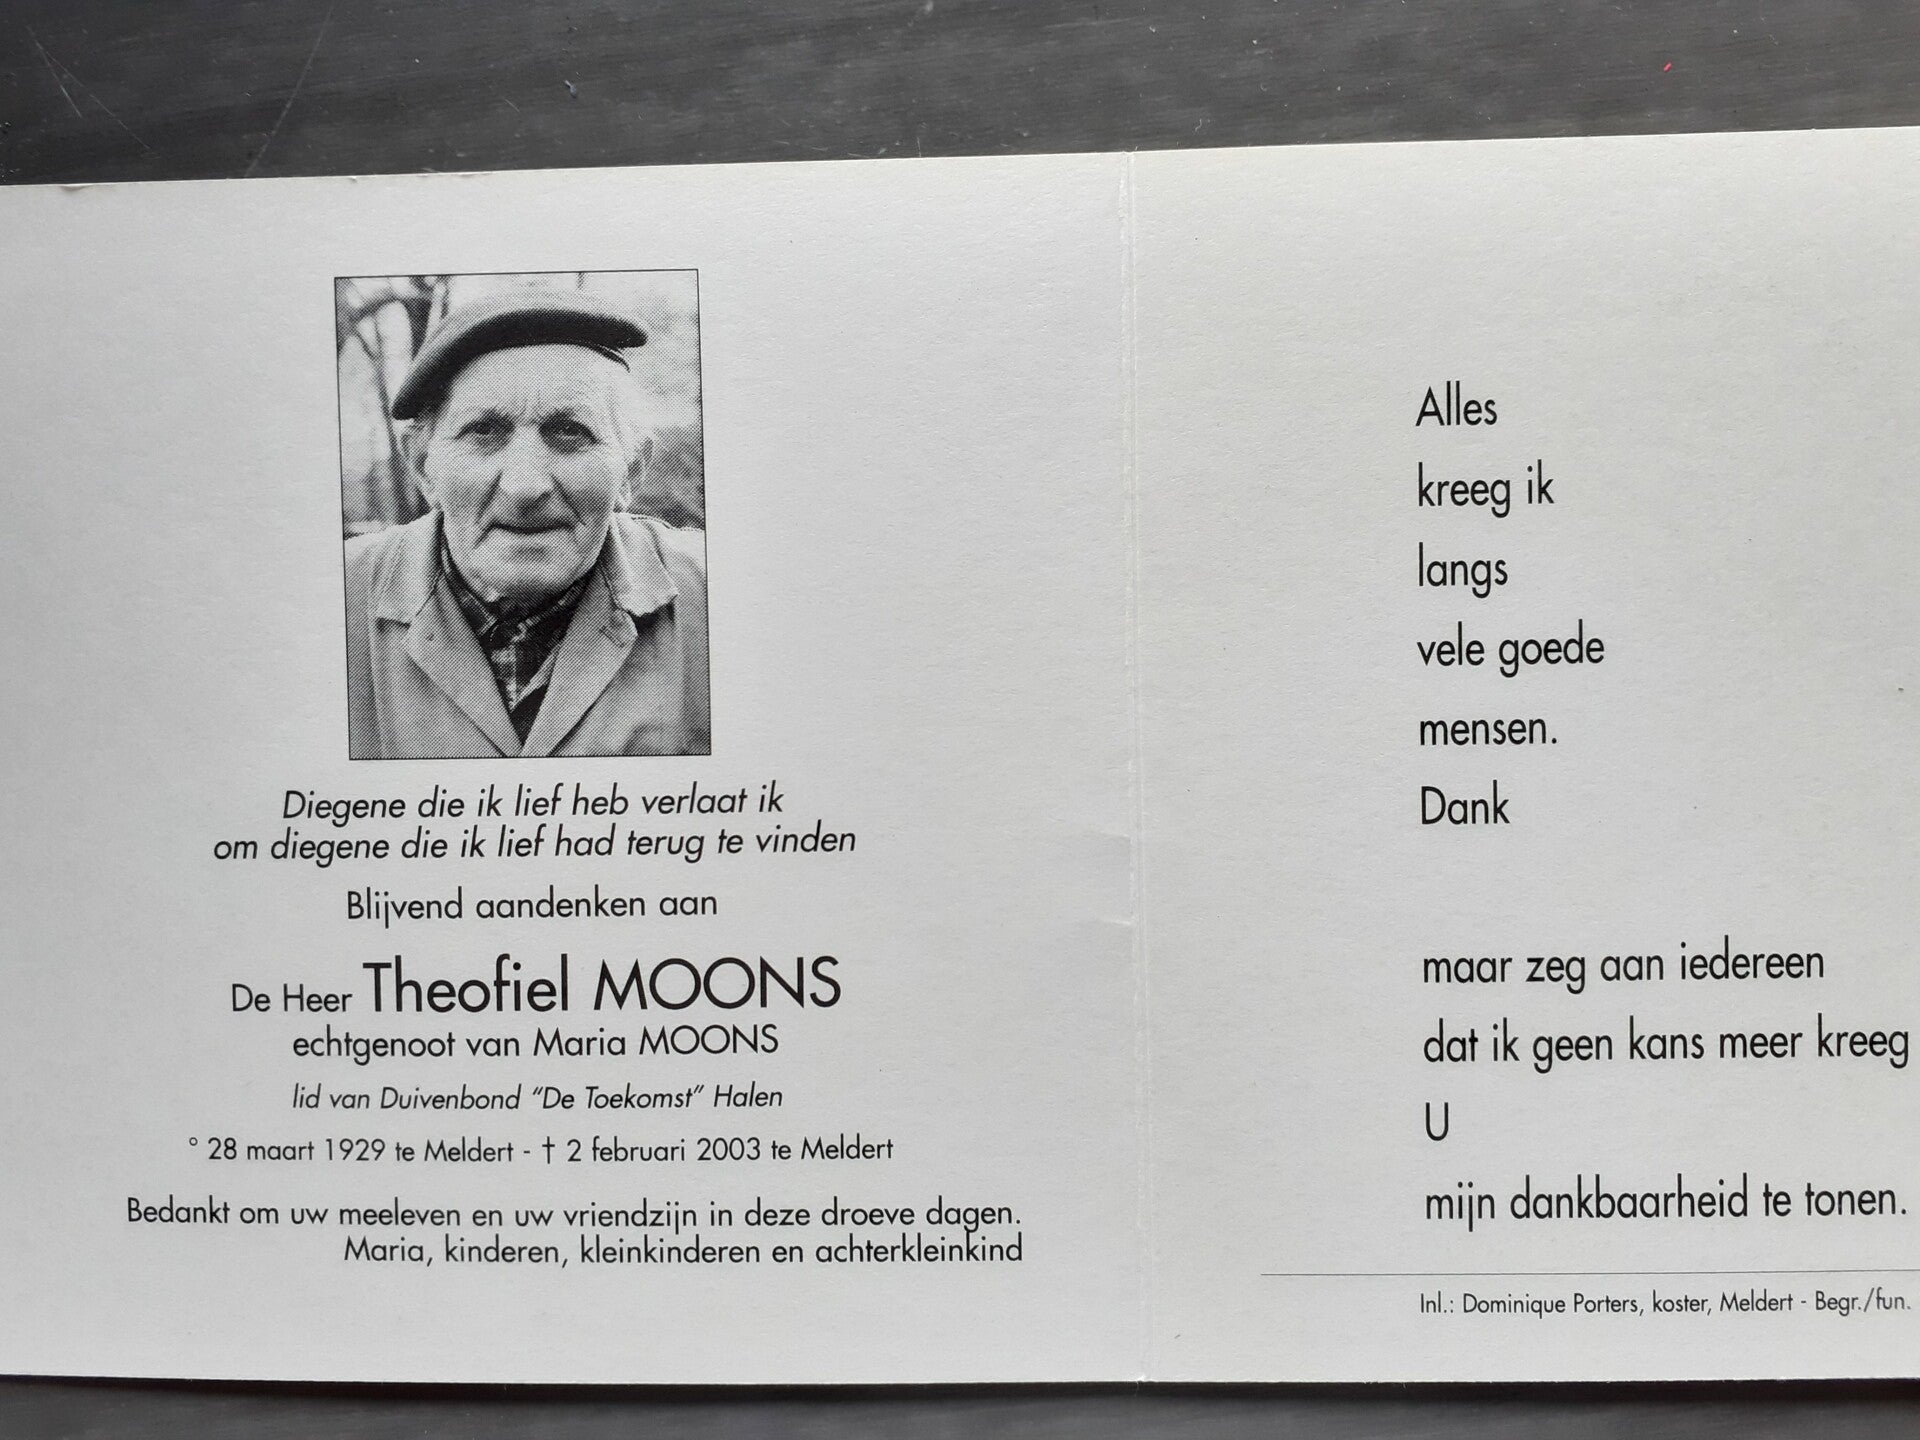 Diegene die ik lief heb verlaat ik
om diegene die ik lief had terug te vinden
Blijvend aandenken aan
De Heer Theofiel MOONS
echtgenoot van Maria MOONS
lid van Duivenbond "De Toekomst" Halen
° 28 maart 1929 te Meldert - † 2 februari 2003 te Meldert
Bedankt om uw meeleven en uw vriendzijn in deze droeve dagen.
Maria, kinderen, kleinkinderen en achterkleinkind
Alles
kreeg ik
langs
vele goede
mensen.
Dank
maar zeg aan iedereen
dat ik geen kans meer kreeg
U
mijn dankbaarheid te tonen.
Inl.: Dominique Porters, koster, Meldert - Begr./fun.